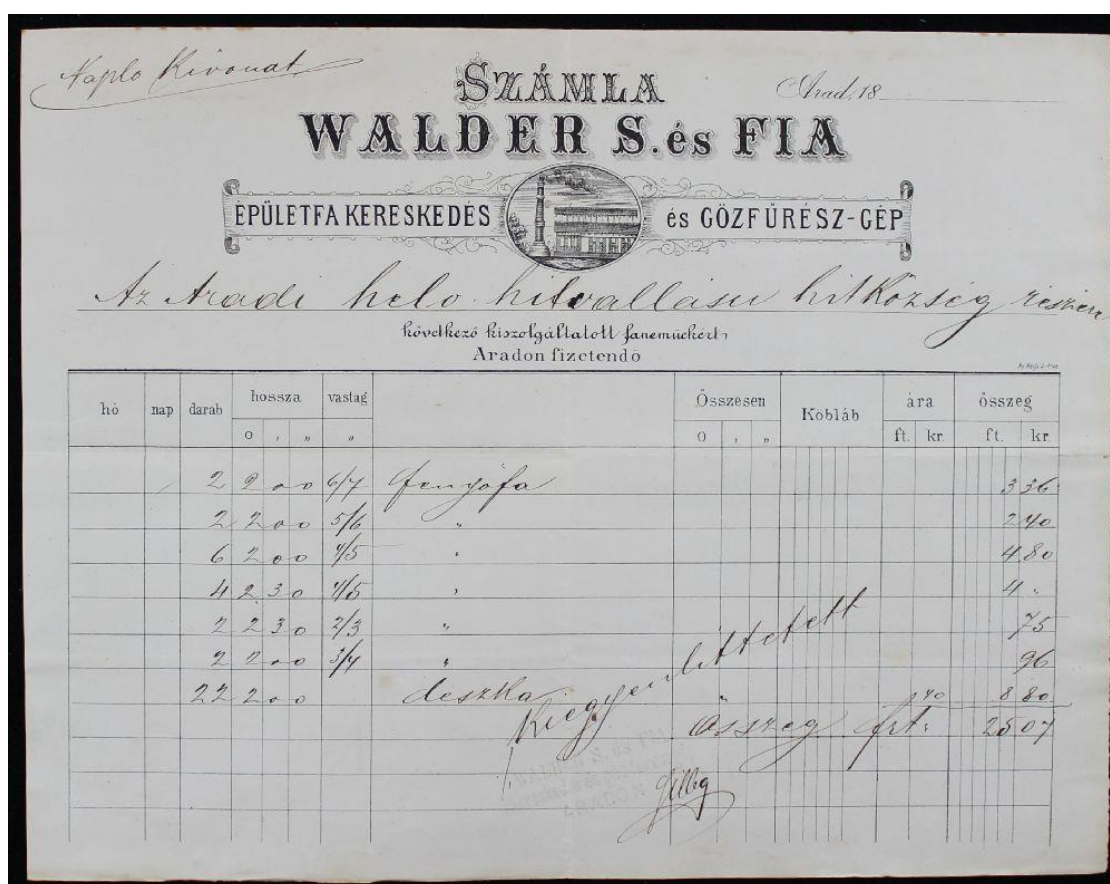 Napló Kivonat
SZÁMLA
Arad, 18
WALDER S. és FIA
ÉPÜLETFA KERESKEDÉS és GŐZFŰRÉSZ-GÉP
Az Aradi helv. hitvallásu hitközség részére
következő kiszolgáltatott faneműekért,
Aradon fizetendő
hó nap darab hossza vastag Összesen Köbláb ára összeg
0 , „ „ 0 , „ ft. kr. ft. kr.
2 2 0 0 6/7 fenyőfa 3 36
2 2 0 0 5/6 " 2 40
6 2 0 0 4/5 " 4 80
4 2 3 0 4/5 " 4 "
2 2 3 0 2/3 " 75
2 2 0 0 3/4 " 96
22 2 0 0 deszka " 40 8 80
Összeg frt: 25 07
Kiegyenlittetett
WALDER S. és FIA
ARADON